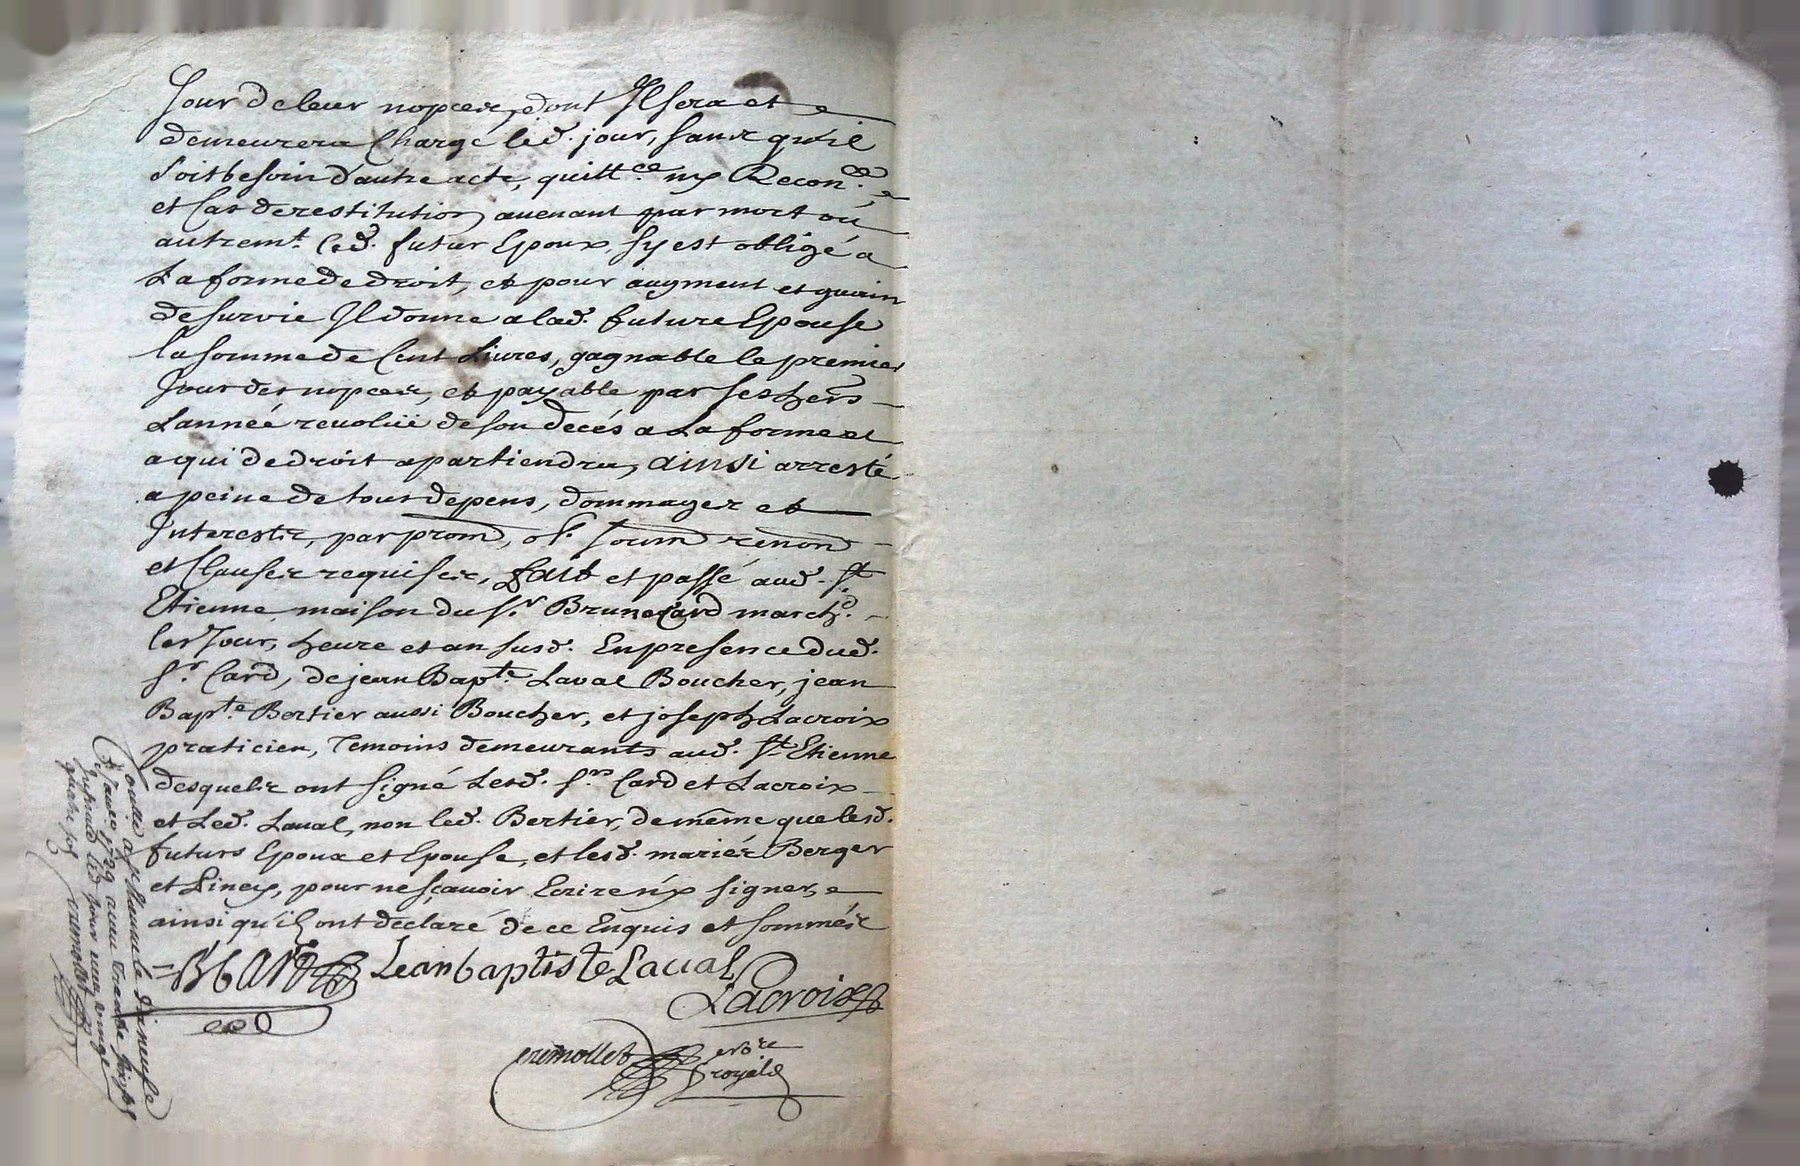 Jour de leur nopces, dont Il sera et
demeurera Chargé led. jour, sans quil
soit besoin d'autre acte, quittce. ny Reconce.
et Cas de restitution avenant par mort ou
autremt. Led. futur Epoux, sy est obligé a
La forme de droit, et pour augment et guain
de survie Il donne a lad. future Epouse
la somme de Cent Livres, gagnable le premier
Jour des nopces, et payable par ses hers
L'année revoluë de son decés a La forme et
a qui de droit apartiendra, ainsi arresté
a peine de tous depens, dommages et
Interests, par prom, ob. soum renon
et Clauses requises, fait et passé aud. St
Etienne maison du sr. Brune Card marchd.
les Jour, heure et an susd. En presence dud.
sr. Card, de jean Bapte. Laval Boucher, jean
Bapte. Bertier aussi Boucher, et joseph Lacroix
praticien, Temoins demeurants aud. St. Etienne
desquels ont signé Lesd. srs Card et Lacroix
et Led. Laval, non led. Bertier, de même que lesd.
futurs Epoux et Epouse, et lesd. mariés Berger
et Piney, pour ne sçavoir Ecrire ny signer,
ainsi qu'ils ont declaré de ce Enquis et sommés
B Card Jean baptiste Laval
Lacroix
remollet nore
royal